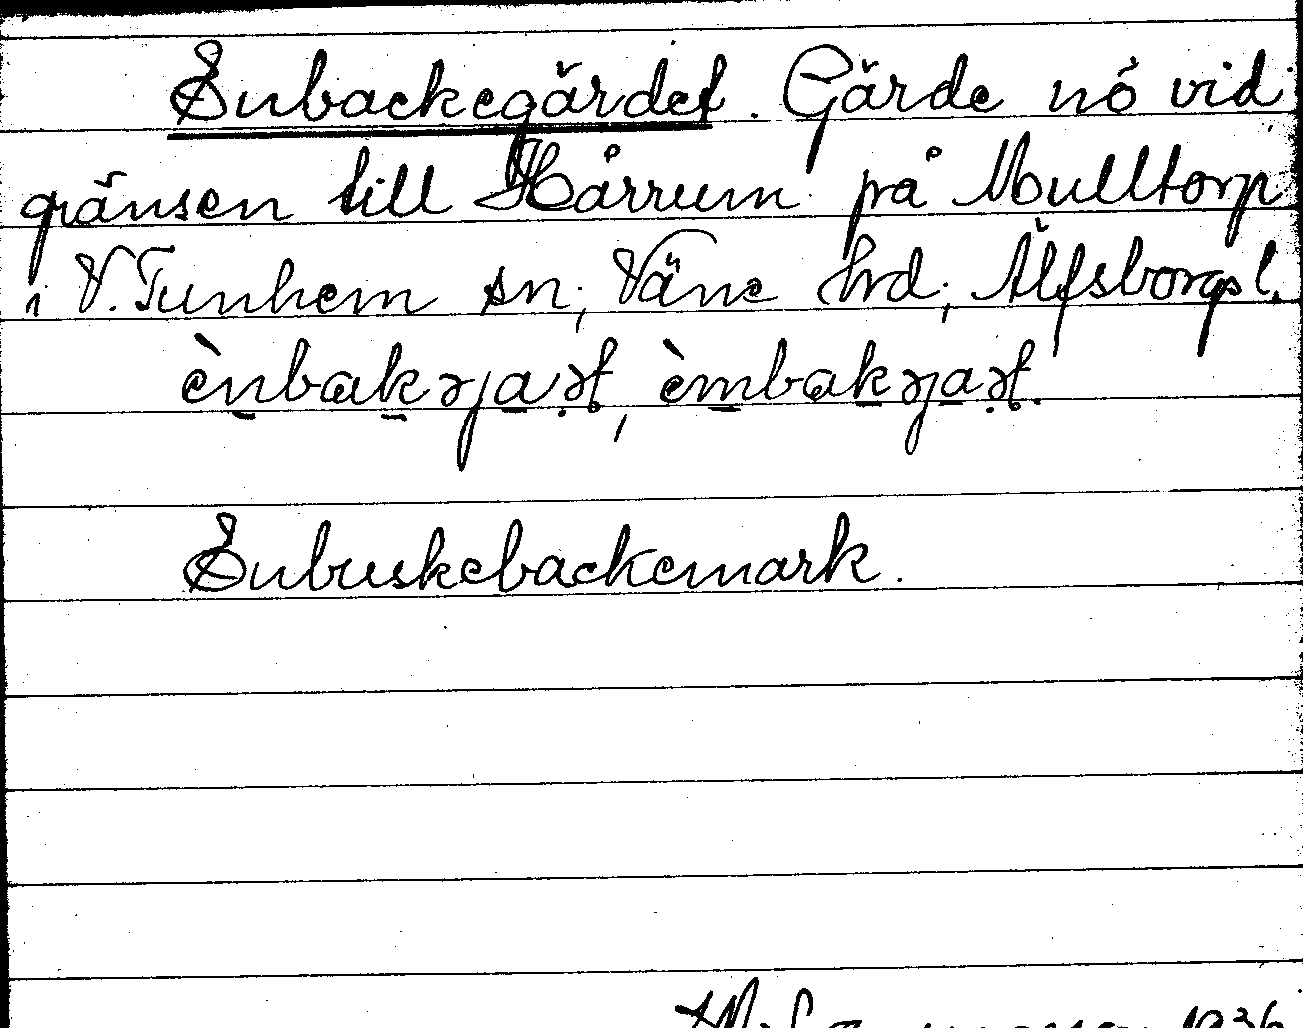 Enbackegärdet. Gärde nö vid
gränsen till Hårrum på Mulltorp
i V. Tunhem sn, Väne hrd, Älfsborgs l.
ènbakəjaṣt, èmbakəjaṣt.
Enbuskebackemark.
1936